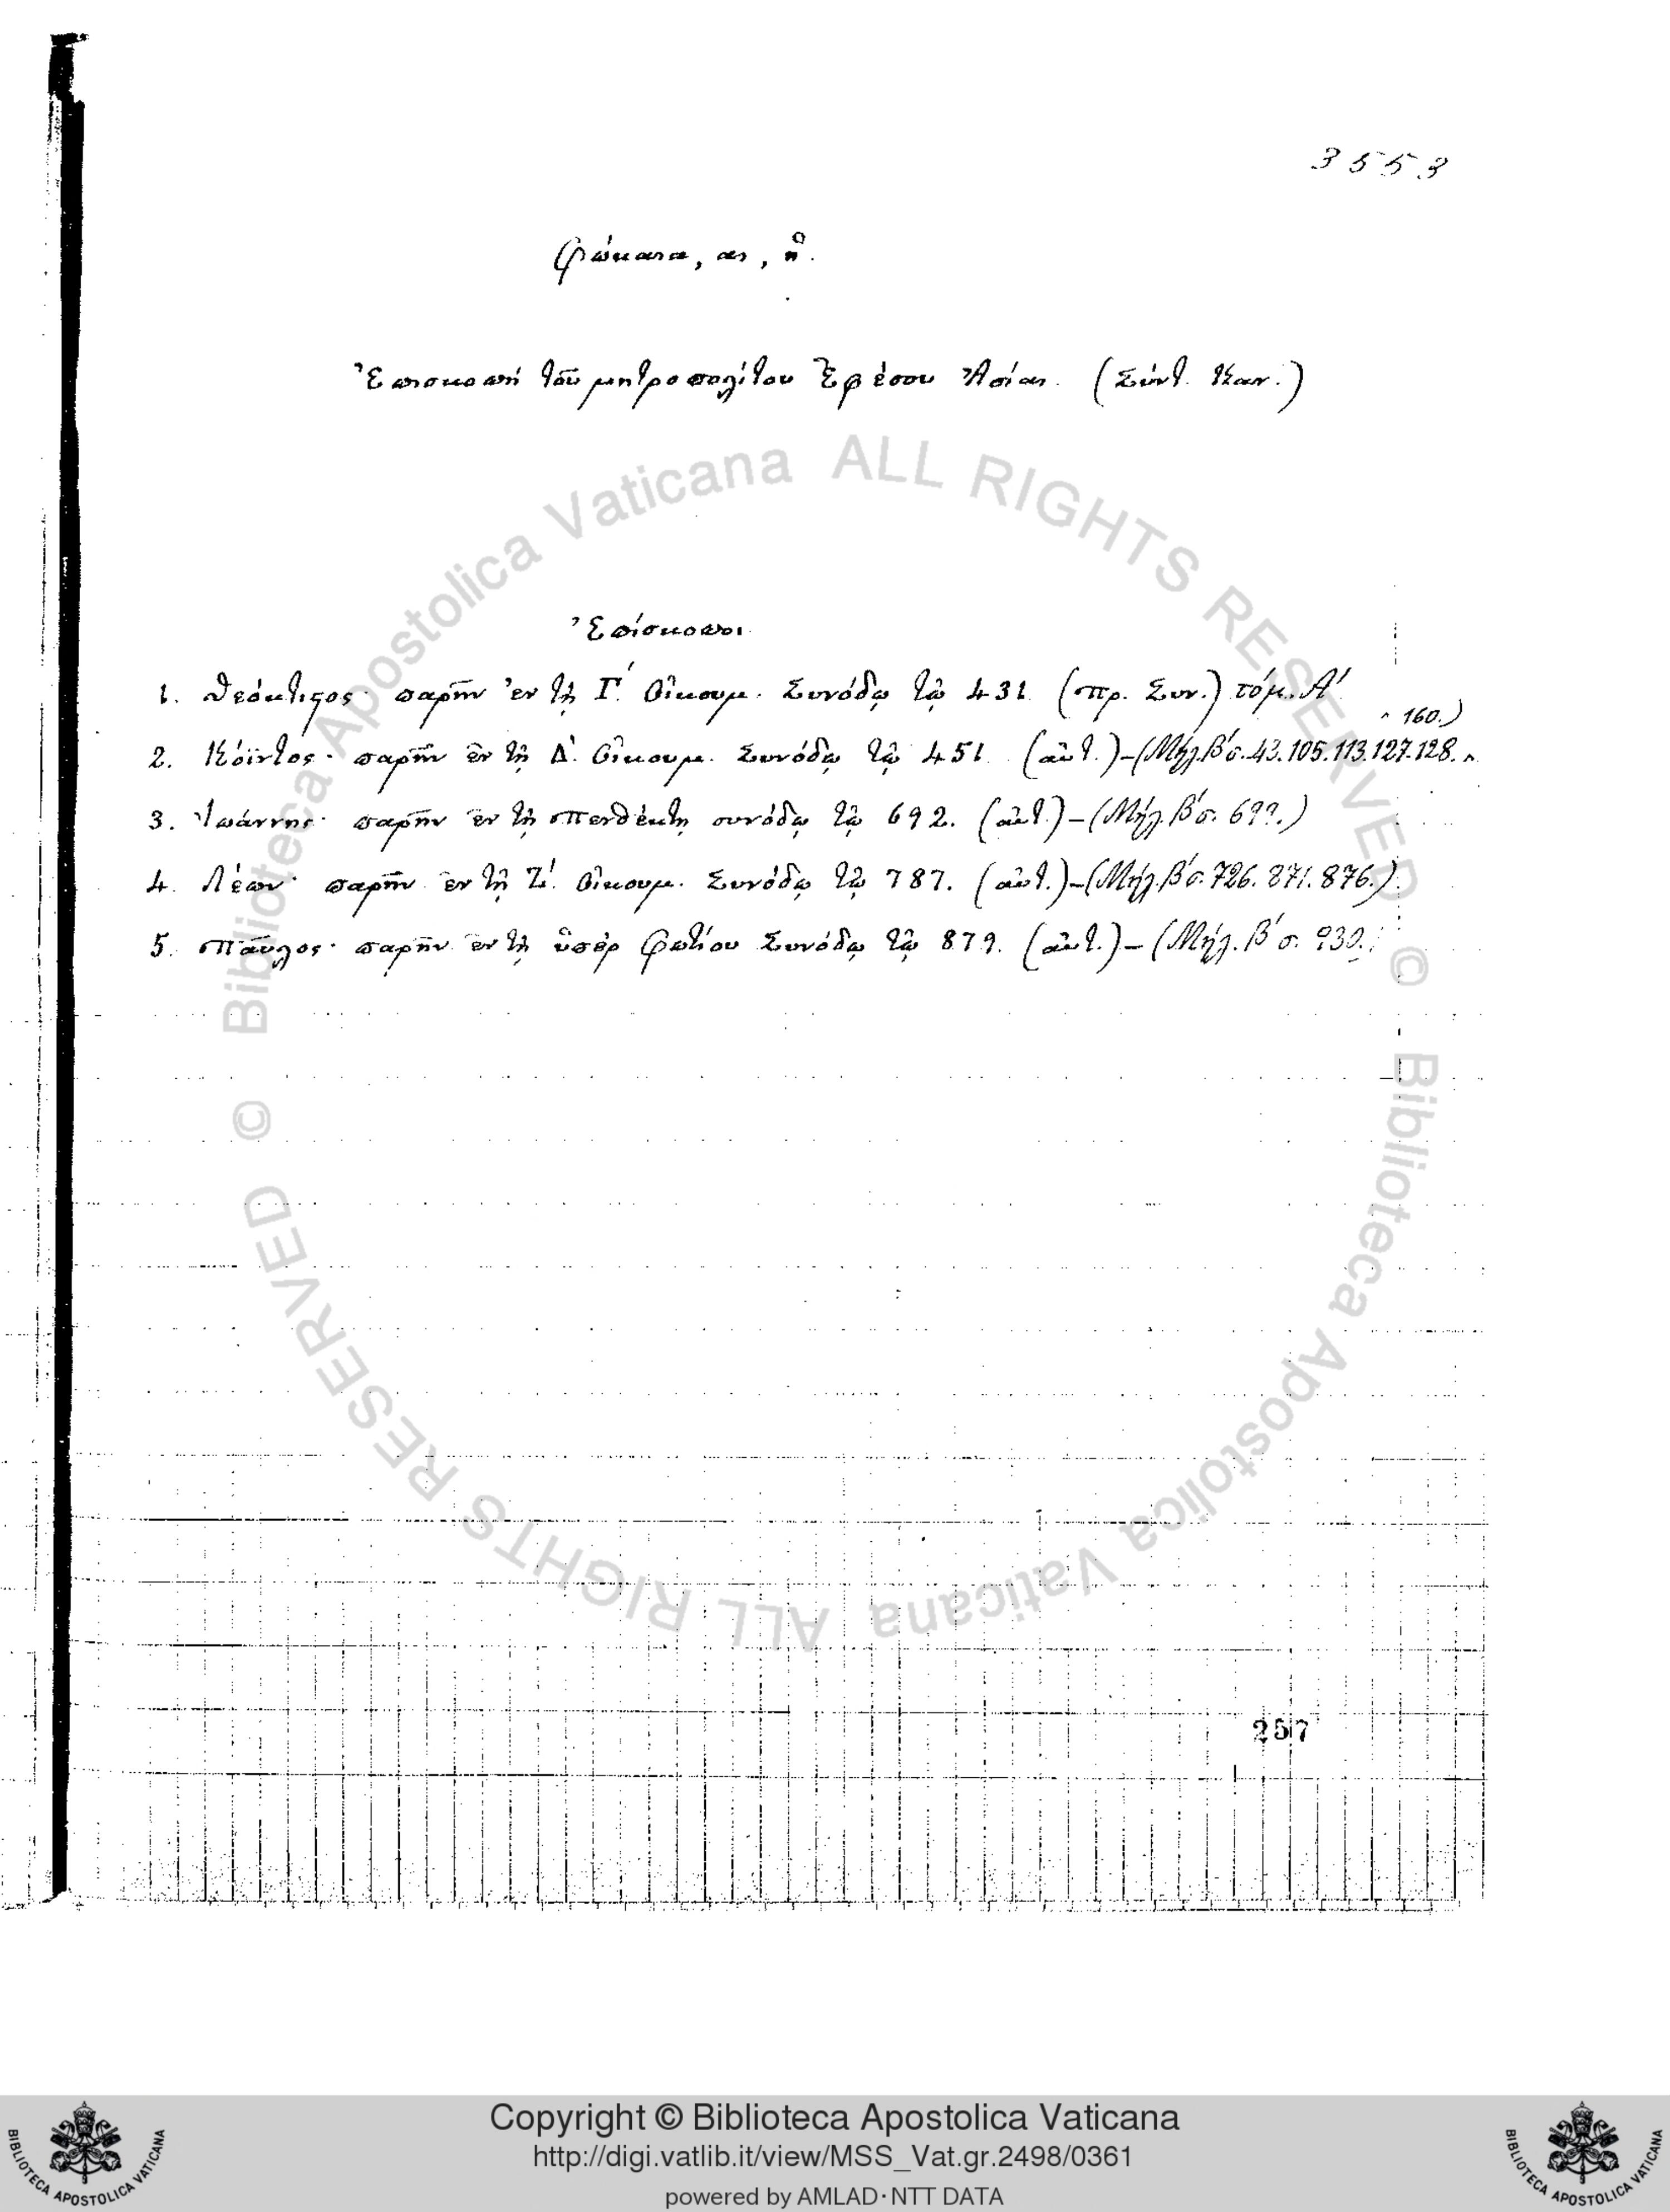 3553
Φώκαια, ας, ἡ.
Ἐπισκοπὴ τοῦ μητροπολίτου Ἐφέσου Ἀσίας. (Σύντ. Καν.)
Ἐπίσκοποι
1. Θεόκτιστος· παρῆν ἐν τῇ Γ΄. Οἰκουμ. Συνόδῳ τῷ 431 (πρ. Συν.) τόμ. Α΄
160.)
2. Κόϊντος· παρῆν ἐν τῇ Δ΄. Οἰκουμ. Συνόδῳ τῷ 451. (αὐτ.)-(Μήλ. β΄ σ. 43.105.113.127.128.
3. Ἰωάννης· παρῆν ἐν τῇ πενθέκτῃ συνόδῳ τῷ 692. (αὐτ.)-(Μήλ. β΄ σ. 699.)
4. Λέων· παρῆν ἐν τῇ Ζ΄. Οἰκουμ. Συνόδῳ τῷ 787. (αὐτ.)-(Μήλ. β΄ σ. 726. 871. 876.)
5. Παῦλος· παρῆν ἐν τῇ ὑπὲρ Φωτίου Συνόδῳ τῷ 879. (αὐτ.)-(Μήλ. β΄ σ. 930.)
257
© Biblioteca Apostolica Vaticana ALL RIGHTS RESERVED
© Biblioteca Apostolica Vaticana ALL RIGHTS RESERVED
Copyright © Biblioteca Apostolica Vaticana
http://digi.vatlib.it/view/MSS_Vat.gr.2498/0361
powered by AMLAD·NTT DATA
BIBLIOTECA APOSTOLICA VATICANA
BIBLIOTECA APOSTOLICA VATICANA